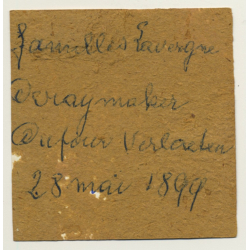 Familles Lavergne
Deraymaker
Dufour Verbreten
28 mai 1899